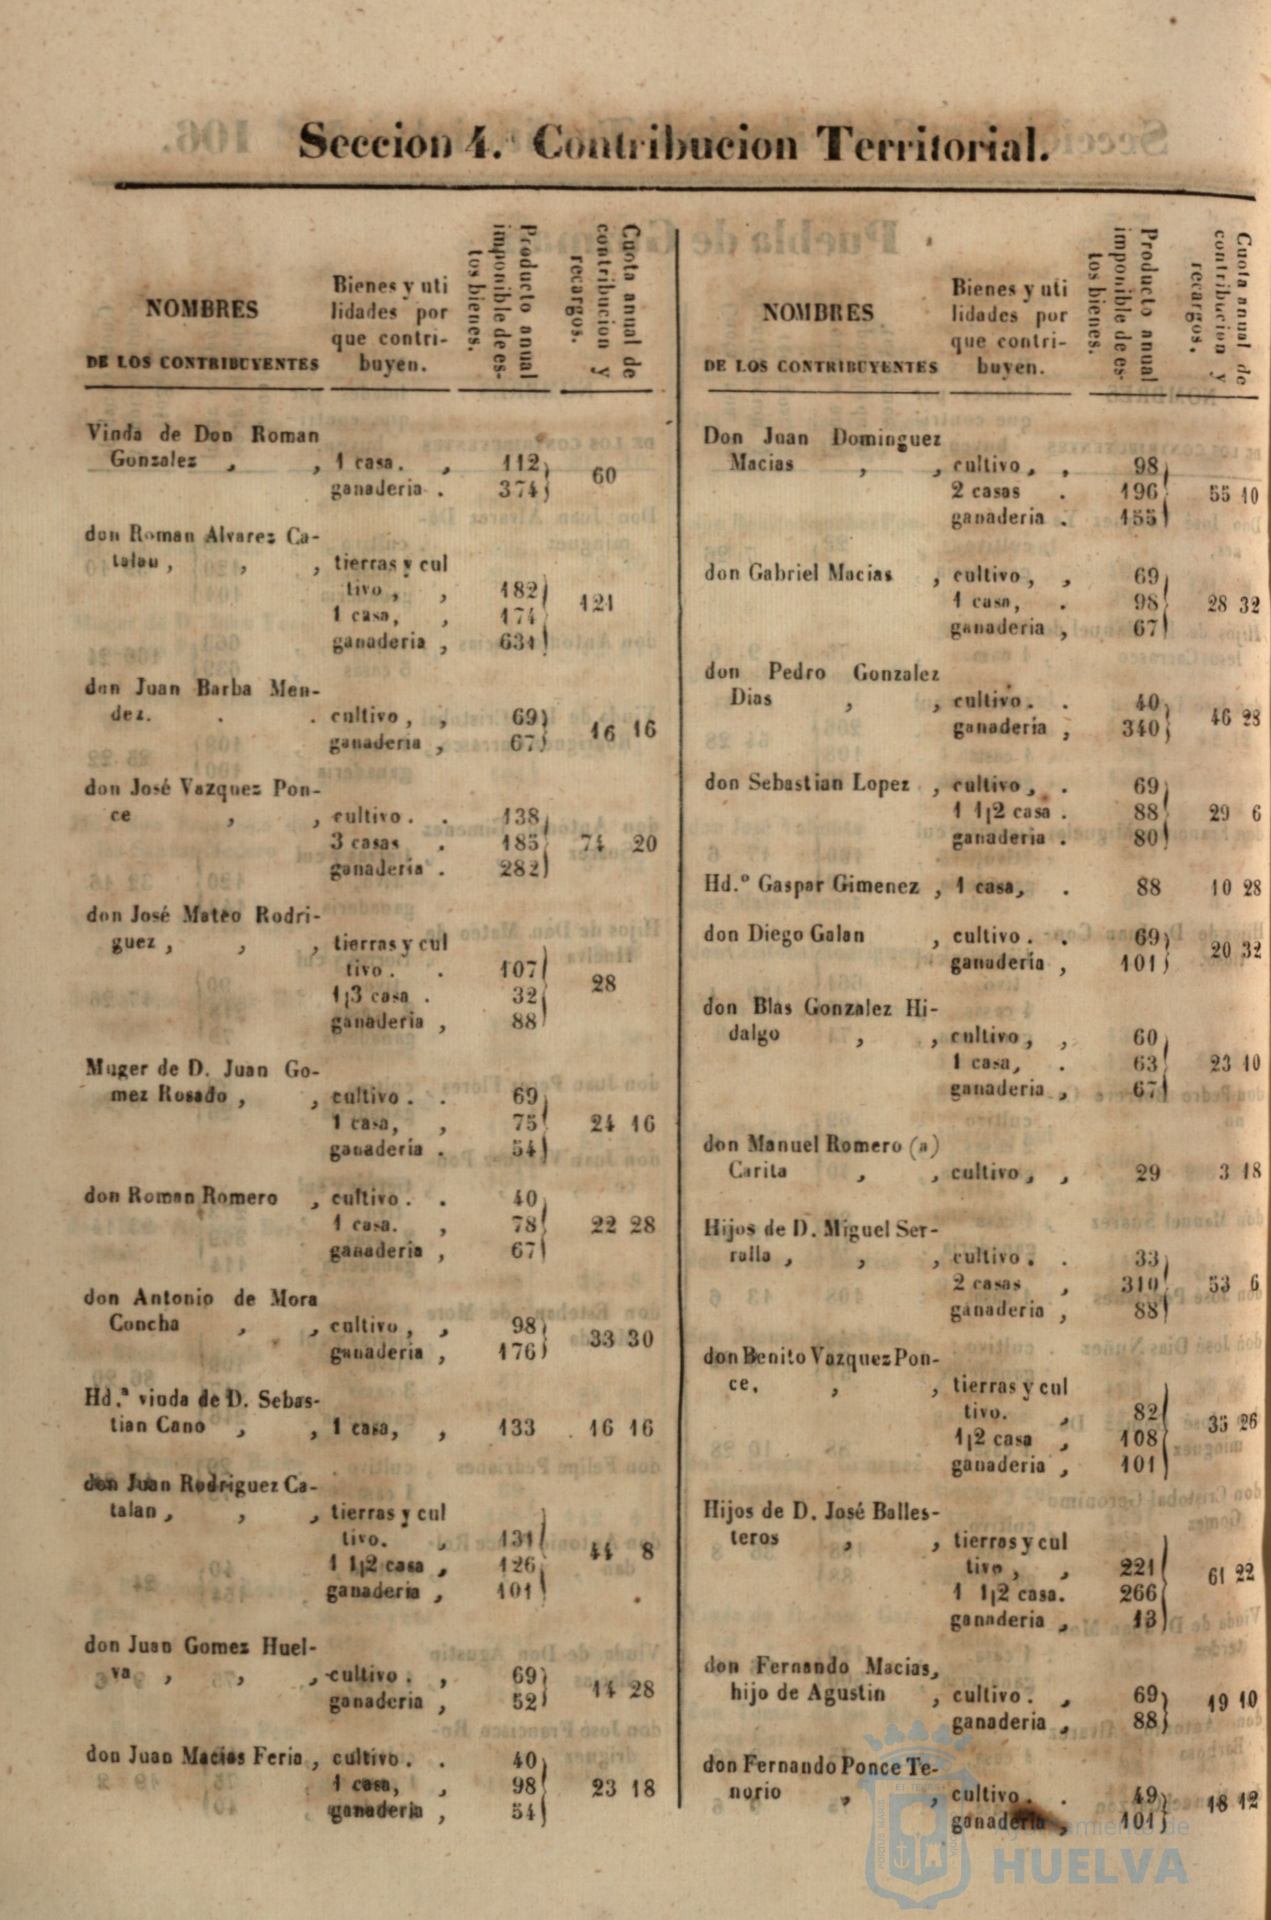 Seccion 4.ª Contribucion Territorial.
NOMBRES
DE LOS CONTRIBUYENTES
Bienes y uti
lidades por
que contri-
buyen.
Producto anual
imponible de es-
tos bienes.
Cuota anual de
contribucion y
recargos.
Viuda de Don Roman
Gonzalez , , 1 casa. , 112
ganaderia . 374 60
don Roman Alvarez Ca-
talan , , , tierras y cul
tivo , , 182
1 casa, , 174 121
ganaderia , 631
don Juan Barba Men-
dez. . . cultivo , , 69
ganaderia , 67 16 16
don José Vazquez Pon-
ce , , cultivo . . 138
3 casas . 185 74 20
ganaderia . 282
don José Mateo Rodri-
guez , , , tierras y cul
tivo . . 107
1|3 casa . 32 28
ganaderia , 88
Muger de D. Juan Go-
mez Rosado , , cultivo . . 69
1 casa, , 75 24 16
ganaderia . 54
don Roman Romero , cultivo . . 40
1 casa. , 78 22 28
ganaderia , 67
don Antonio de Mora
Concha , , cultivo , , 98
ganaderia , 176 33 30
Hd.ª viuda de D. Sebas-
tian Cano , , 1 casa, , 133 16 16
don Juan Rodriguez Ca-
talan , , , tierras y cul
tivo. , 131
1 1|2 casa , 126 44 8
ganaderia , 101
don Juan Gomez Huel-
va , , , cultivo . , 69
ganaderia , 52 14 28
don Juan Macias Feria , cultivo . . 40
1 casa, , 98 23 18
ganaderia , 54
NOMBRES
DE LOS CONTRIBUYENTES
Bienes y uti
lidades por
que contri-
buyen.
Producto anual
imponible de es-
tos bienes.
Cuota anual de
contribucion y
recargos.
Don Juan Dominguez
Macias , , cultivo , , 98
2 casas . 196 55 10
ganaderia . 155
don Gabriel Macias , cultivo , , 69
1 casa, . 98 28 32
ganaderia , 67
don Pedro Gonzalez
Dias , , cultivo. . 40
ganaderia , 340 46 28
don Sebastian Lopez , cultivo , . 69
1 1|2 casa . 88 29 6
ganaderia . 80
Hd.º Gaspar Gimenez , 1 casa, . 88 10 28
don Diego Galan , cultivo . . 69
ganaderia , 101 20 32
don Blas Gonzalez Hi-
dalgo , , cultivo , , 60
1 casa, . 63 23 10
ganaderia , 67
don Manuel Romero (a)
Carita , , cultivo , , 29 3 18
Hijos de D. Miguel Ser-
ralla , , , cultivo . . 33
2 casas , 310 53 6
ganaderia , 88
don Benito Vazquez Pon-
ce. , , tierras y cul
tivo. , 82
1|2 casa , 108 35 26
ganaderia , 101
Hijos de D. José Balles-
teros , , tierras y cul
tivo , , 221
1 1|2 casa. 266 61 22
ganaderia , 13
don Fernando Macias,
hijo de Agustin , cultivo . , 69
ganaderia , 88 19 10
don Fernando Ponce Te-
norio , , cultivo . . 49
ganaderia , 101 18 12
ayuntamiento de
HUELVA